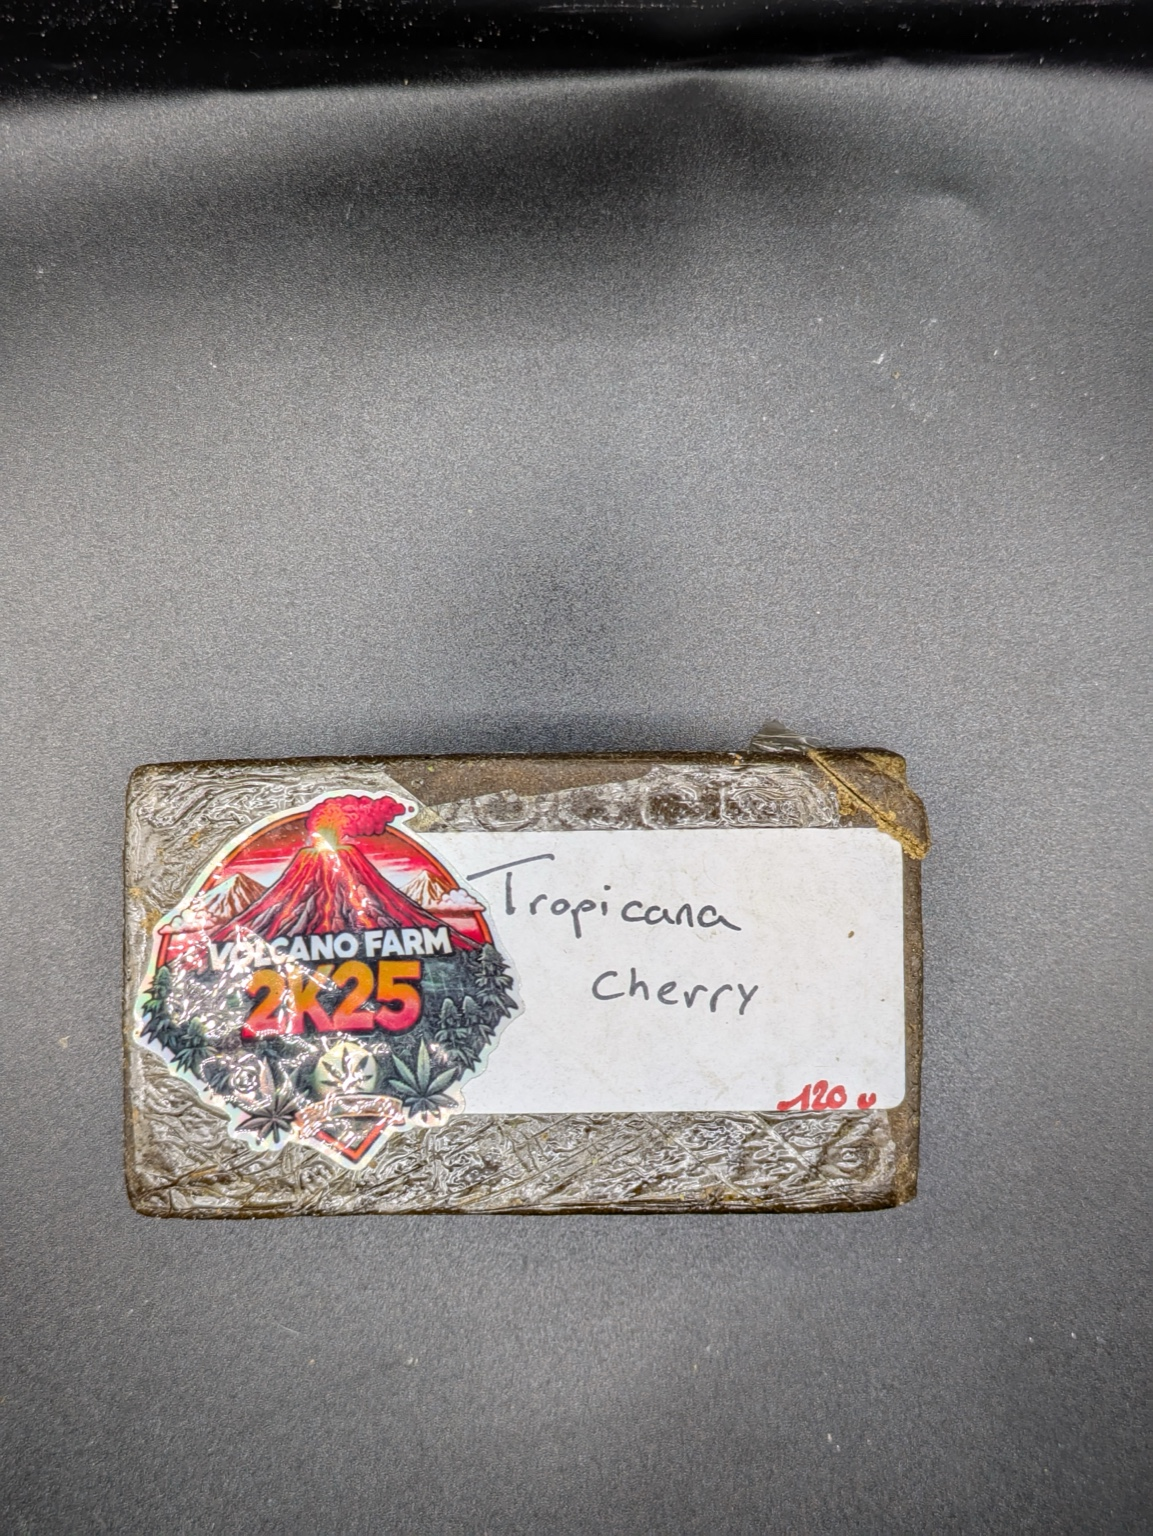 VOLCANO FARM
2K25
Tropicana
Cherry
120 u